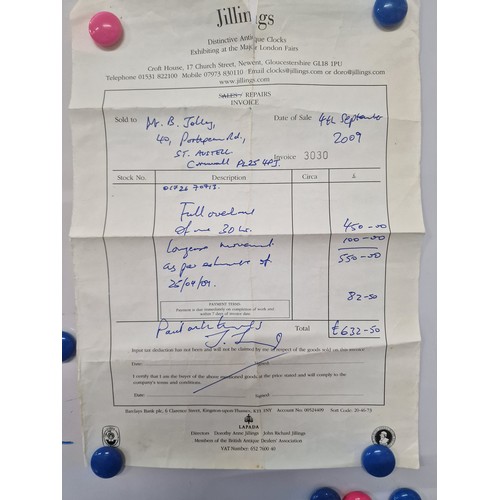 Jillings
Distinctive Antique Clocks
Exhibiting at the Major London Fairs
Croft House, 17 Church Street, Newent, Gloucestershire GL18 1PU
Telephone 01531 822100 Mobile 07973 830110 Email clocks@jillings.com or doro@jillings.com
www.jillings.com
SALES / REPAIRS
INVOICE
Sold to Mr. B. Jolley,
Date of Sale 4th September
2009
40,
ST. AUSTELL
Cornwall PL25 4PJ.
Invoice 3030
Stock No. Description Circa £
Full overhaul
of one 30 hr.
450-00
longcase movement
100-00
as per estimate of
550-00
82-50
PAYMENT TERMS
Payment is due immediately on completion of work and
within 7 days of invoice date
Total £632-50
Input tax deduction has not been and will not be claimed by me in respect of the goods sold on this invoice
Date: Signed
I certify that I am the buyer of the above mentioned goods at the price stated and will comply to the
company's terms and conditions.
Date: Signed
Barclays Bank plc, 6 Clarence Street, Kingston-upon-Thames, KT1 Account No. Sort Code:
LAPADA
Directors Dorothy Anne Jillings John Richard Jillings
Members of the British Antique Dealers' Association
VAT Number: 652 7600 40